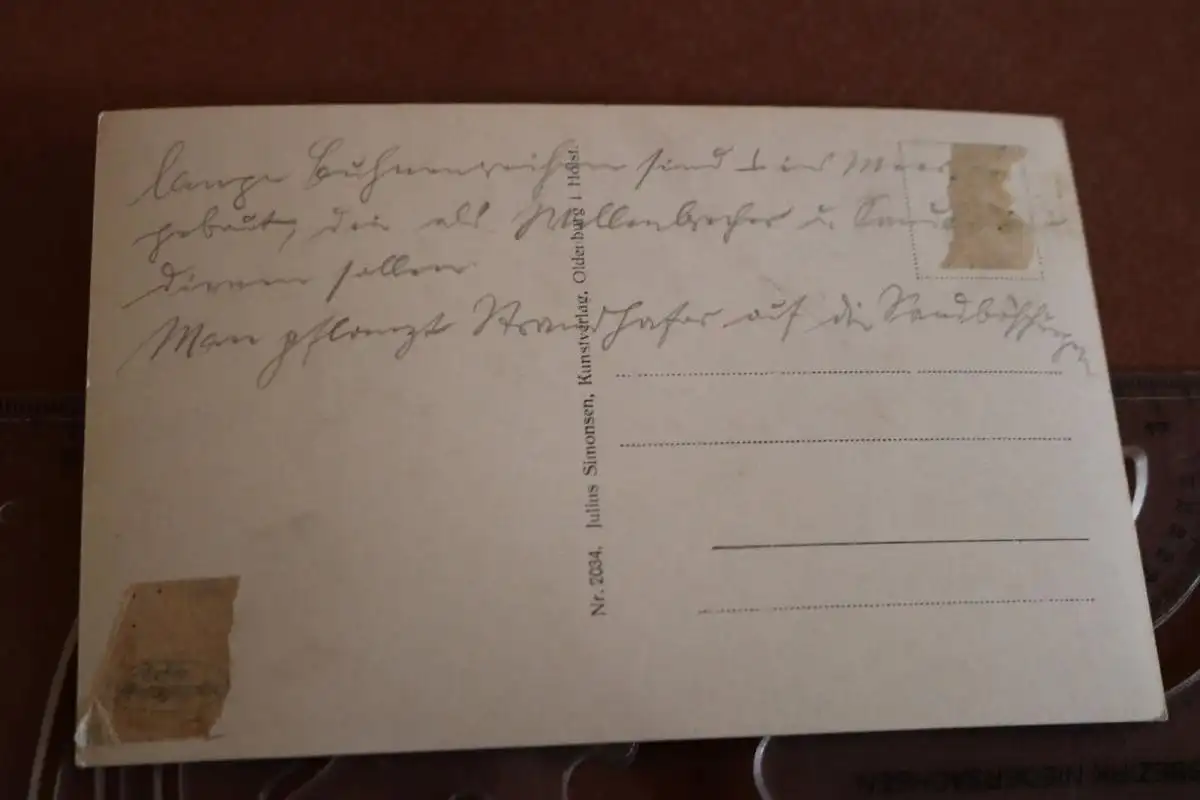 lange Buhnenreihen sind ⊥ ins Meer
gebaut, die als Wellenbrecher u.
dienen sollen
Man pflanzt Strandhafer auf die
Nr. 2034. Julius Simonsen, Kunstverlag, Oldenburg i. Holst.